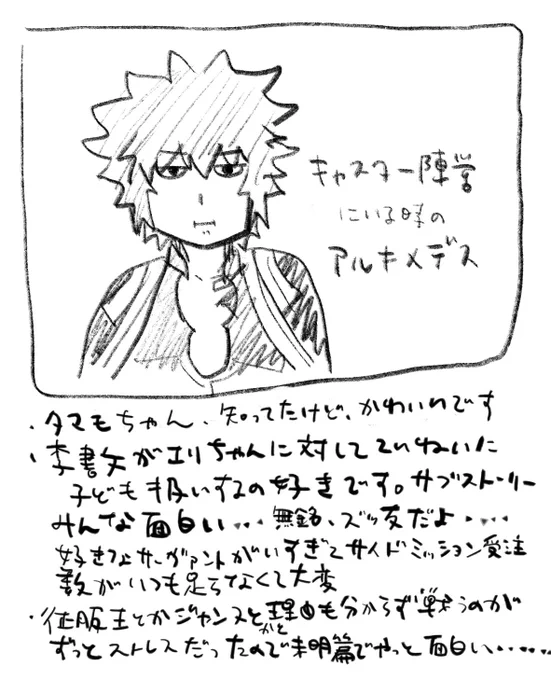 キャスター陣営
にいる時の
アルキメデス
・タマモちゃん、知ってたけど、かわいいです
・李書文がエリちゃんに対してていねいに
子ども扱いするの好きです。サブストーリー
みんな面白い… 無銘、ズッ友だよ…
好きなサーヴァントがいすぎてサイドミッション受注
数がいつも足らなくて大変
・征服王とかジャンヌと理由も分からず戦うのが
かと
ずっとストレスだったので未明篇でやっと面白い……